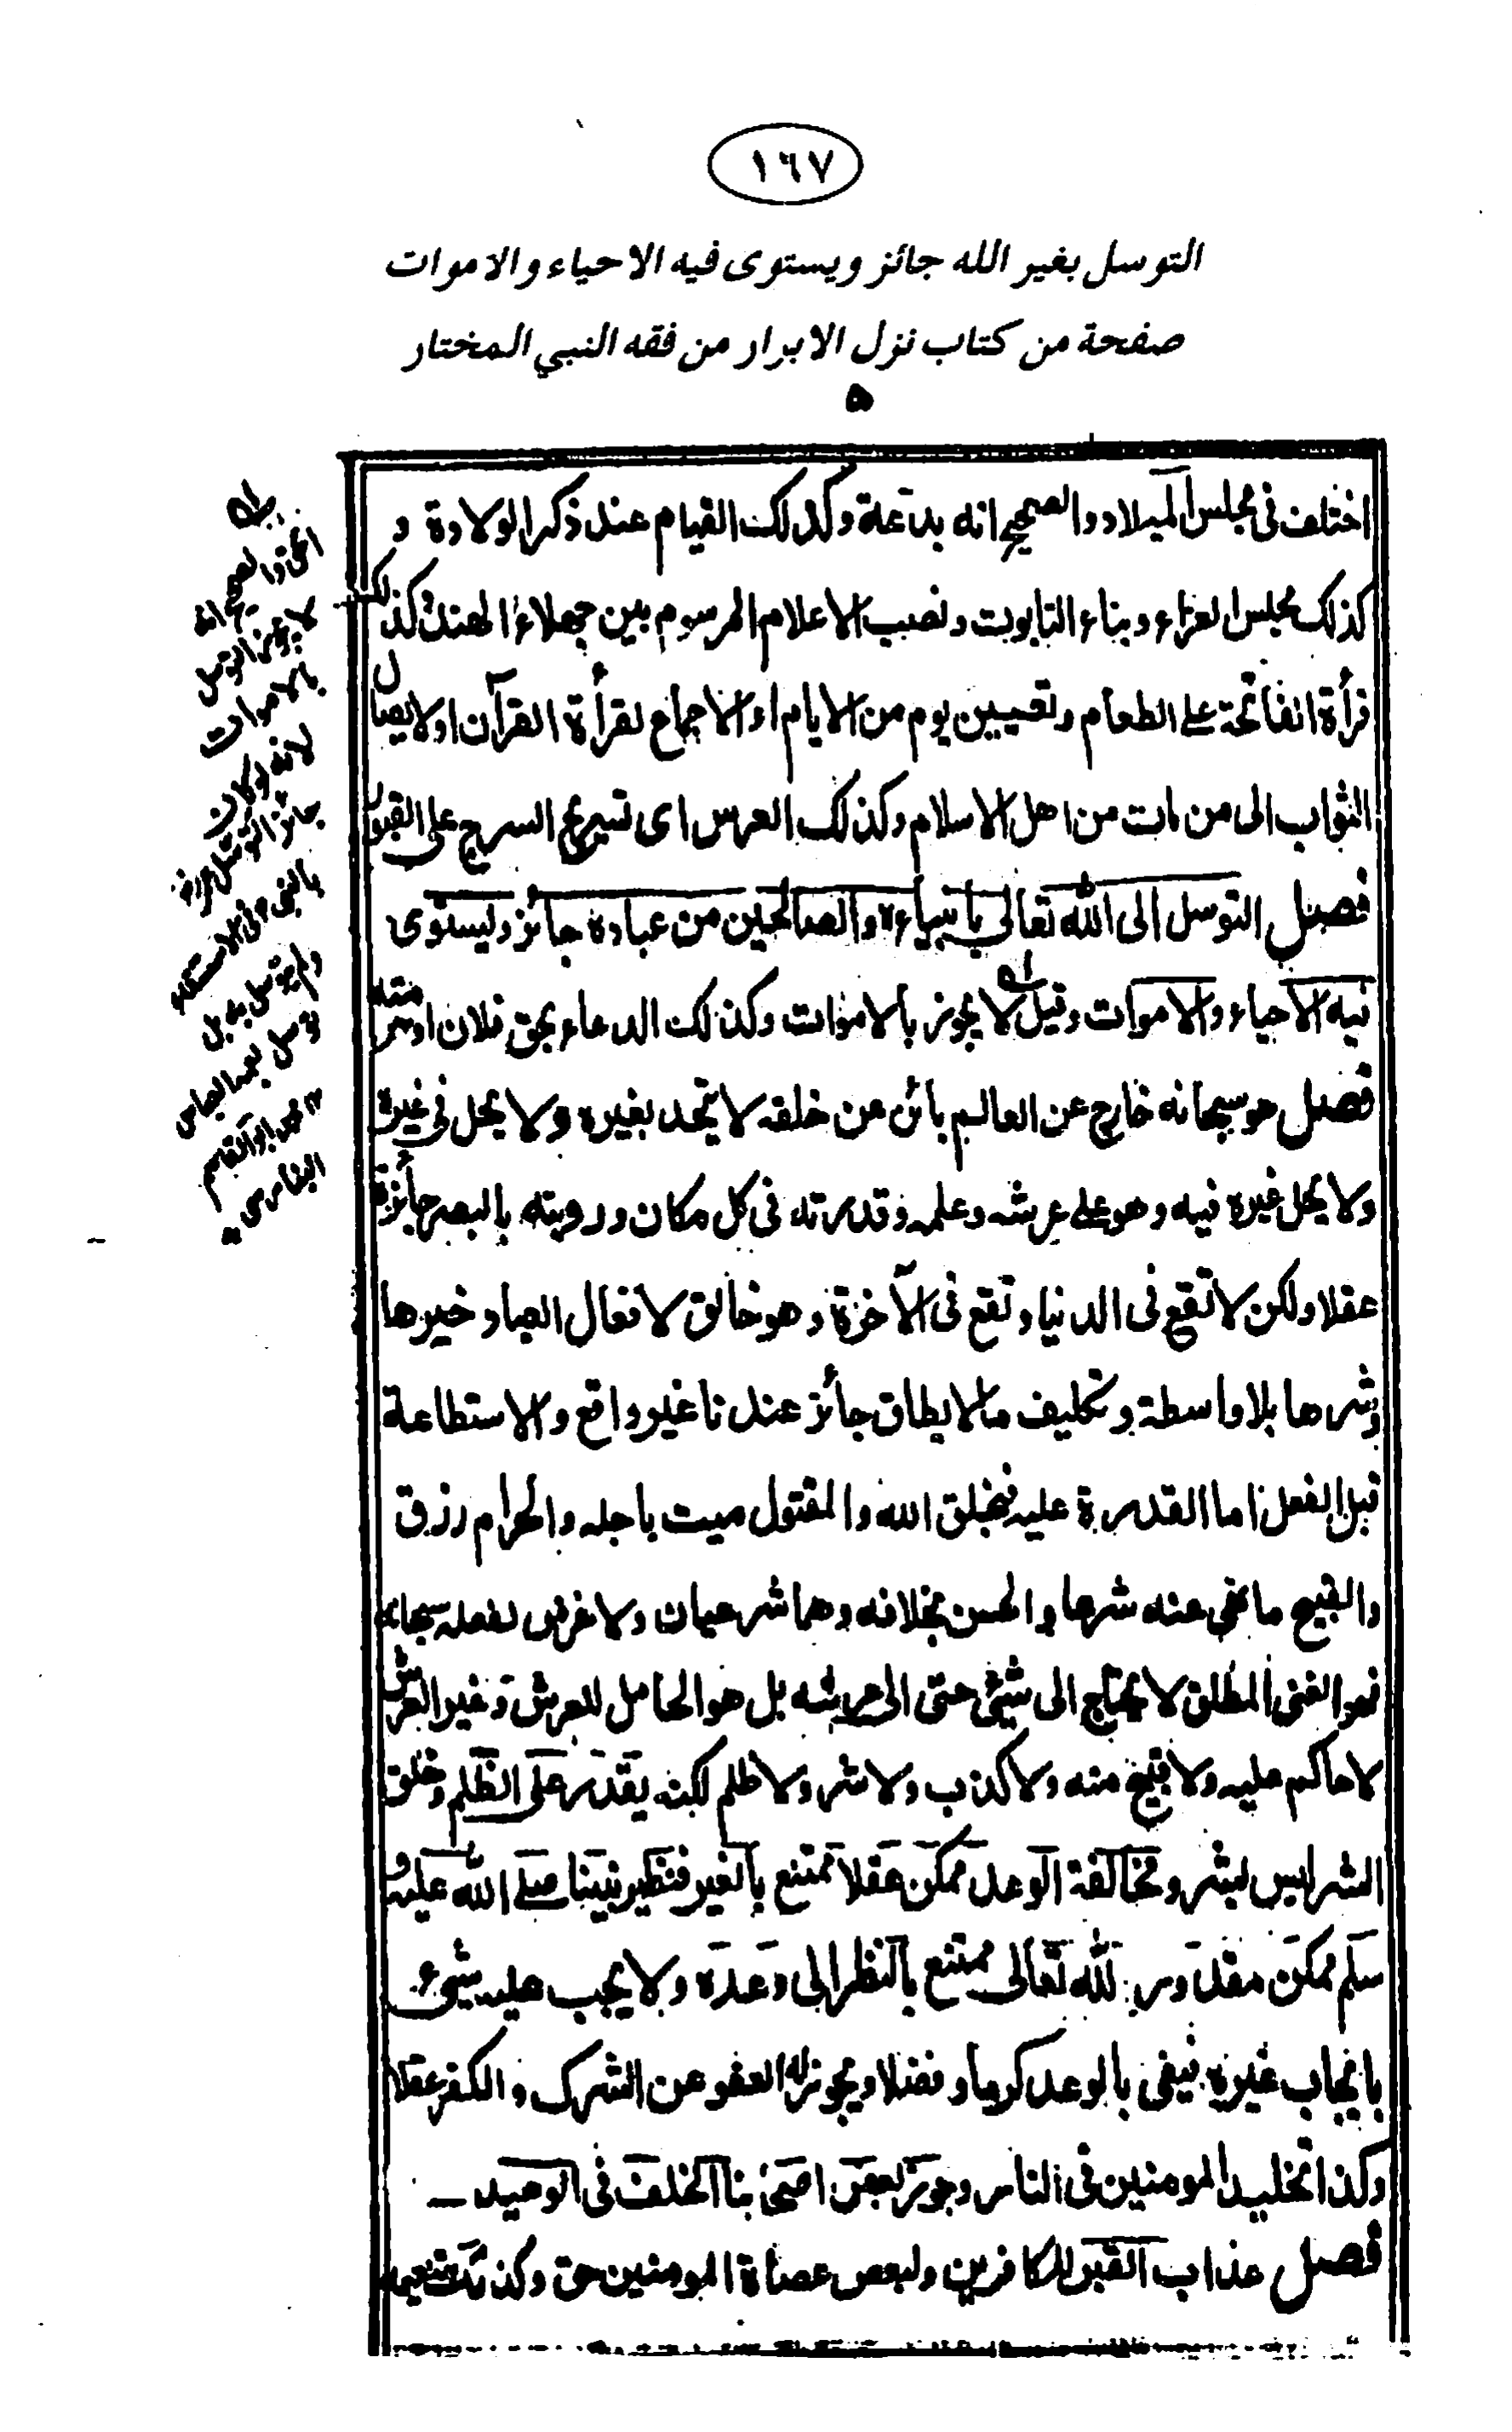 ١٦٧
التوسل بغير الله جائز ويستوى فيه الاحياء والاموات
صفحة من كتاب نزل الابرار من فقه النبي المختار
٥
اختلف فى مجلس الميلاد والصحيح انه بدعة وكذلك القيام عند ذكر الولادة و
كذلك مجلس العزاء وبناء التابوت ونصب الاعلام المرسوم بين جهلاء الهند وكذلك
قرأة الفاتحة على الطعام وتعيين يوم من الايام او الاجماع لقرأة القرآن اولايصال
الثواب الى من مات من اهل الاسلام وكذلك العرس اى تسريج السرج على القبور
فصل التوسل الى الله تعالى بانبياءه والصالحين من عباده جائز ويستوى
فيه الاحياء والاموات وقيل لا يجوز بالاموات وكذلك الدعاء بحق فلان او حرمته
فصل هو سبحانه خارج عن العالم بائن عن خلقه لا يتحد بغيره ولا يحل فى غيره
ولا يحل غيره فيه وهو على عرشه وعلمه وقدرته فى كل مكان ورويته بالبصر جائزة
عقلا ولكن لا تقع فى الدنيا وتقع فى الآخرة وهو خالق لافعال العباد خيرها
وشرها بلا واسطة وتكليف ما لا يطاق جائز عندنا غير واقع والاستطاعة
قبل الفعل اما القدرة عليه فبخلق الله والمقتول ميت باجله والحرام رزق
والقبيح ما نهى عنه شرعا والحسن بخلافه وهما شرعيان ولا غرض لفعله سبحانه
فهو الغنى المطلق لا يحتاج الى شيئ حتى الى عرشه بل هو الحامل للعرش وغير العرش
لا حاكم عليه ولا قبيح منه ولا كذب ولا شر ولا ظلم لكنه يقدر على الظلم وخلق
الشر ليس بشر ومخالفة الوعد ممكن عقلا ممتنع بالغير فنظير نبينا صلى الله عليه و
سلم ممكن مقدور لله تعالى ممتنع بالنظر الى وعده ولا يجب عليه شيء
بايجاب غيره فيفى بالوعد كرما وفضلا ويجوز له العفو عن الشرك والكفر عقلا
وكذا تخليد المومنين فى النار وجوز بعض اصحابنا الخلف فى الوعيد ـ
فصل عذاب القبر للكافرين ولبعض عصاة المومنين حق وكذلك تنعيم
لا يجوز التوسل
بالاموات
لانه لو كان
جائزا
توسل بعمه العباس
ابو القاسم
البنارسى